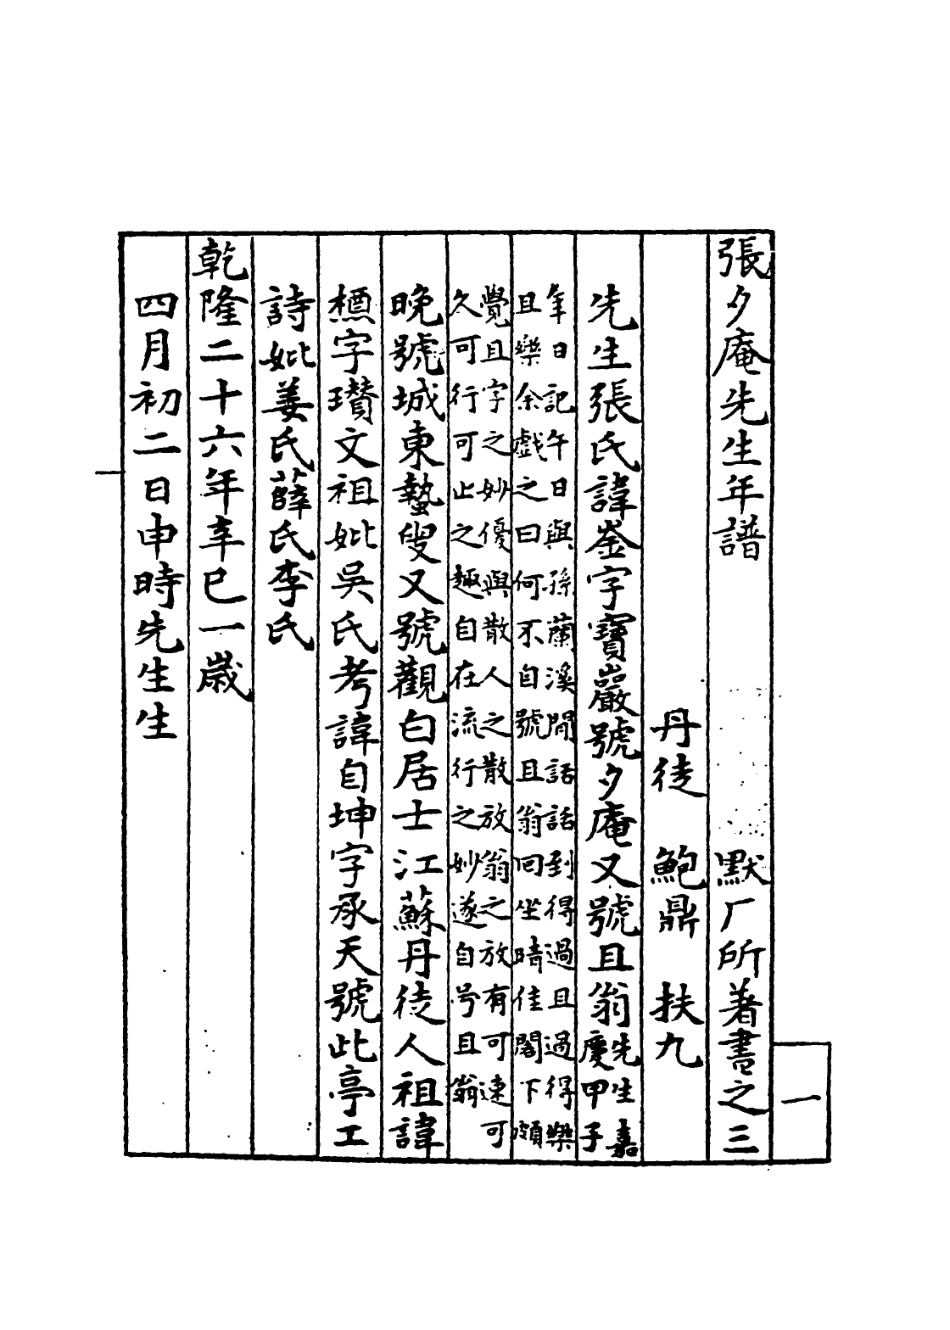 張夕庵先生年譜 默厂所著書之三
丹徒 鮑鼎 扶九
先生張氏諱崟字寶巖號夕庵又號且翁先生嘉慶甲子
年日記午日與孫蘭溪閒話話到得過且過得樂
且樂余戲之曰何不自號且翁回坐時佳閣下頗
覺且字之妙優與散人之散放翁之放有可速可
久可行可止之趣自在流行之妙遂自号且翁
晚號城東蟄叟又號觀白居士江蘇丹徒人祖諱
字瓚文祖妣吳氏考諱自坤字承天號此亭工
詩妣姜氏薛氏李氏
乾隆二十六年辛巳一歲
四月初二日申時先生生
一